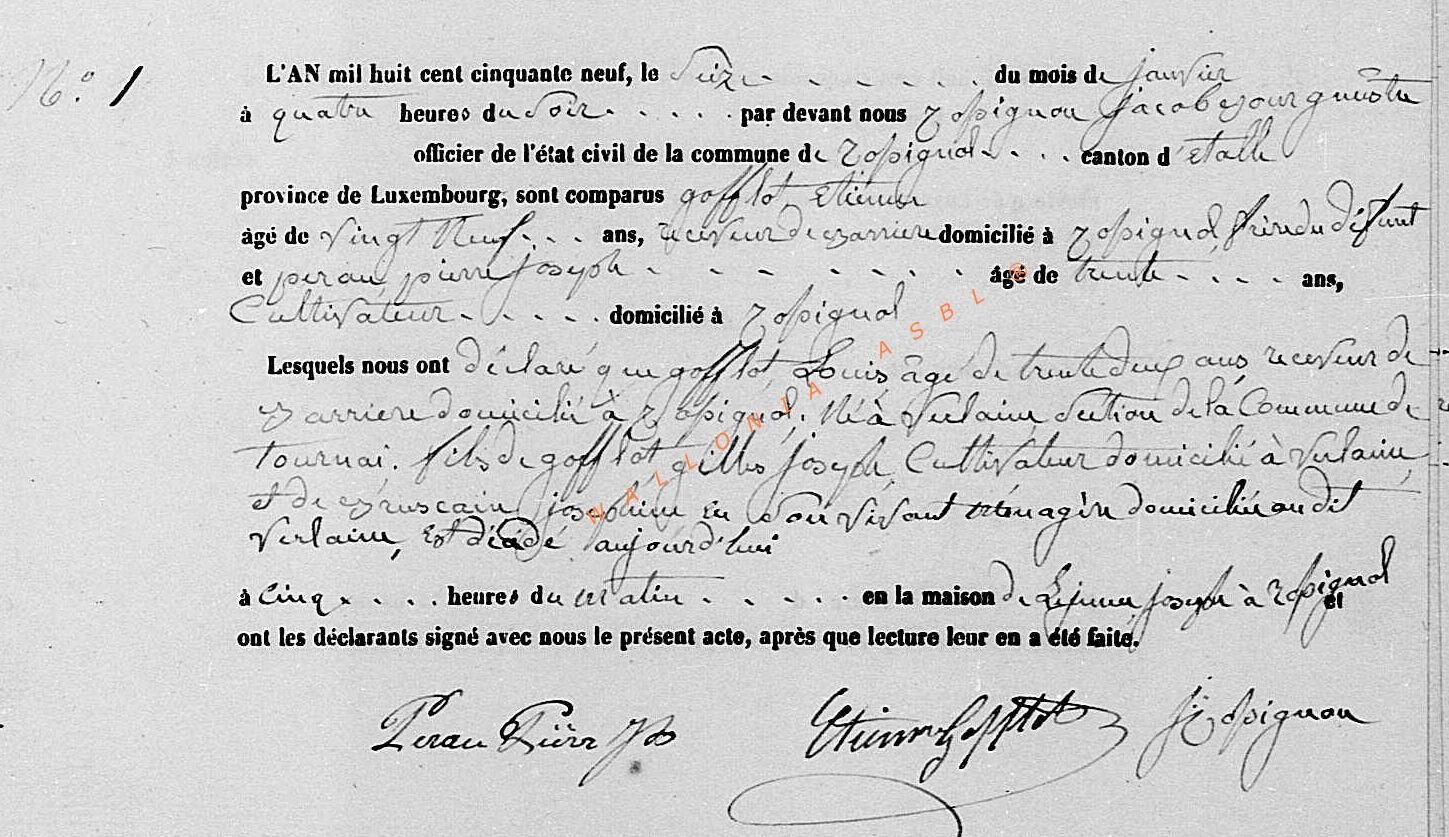 N.º 1
L'AN mil huit cent cinquante neuf, le Seize du mois de janvier
à quatre heures du Soir par devant nous rossignon jacob bourguestre
officier de l'état civil de la commune de rossignol canton d'étalle
province de Luxembourg, sont comparus gofflot, etienne
âgé de vingt Neuf ans, receveur de barriere domicilié à rossignol, frere du défunt
et perau pierre joseph âgé de trente ans,
Cultivateur domicilié à rossignol
Lesquels nous ont déclaré que gofflot, Louis, âgé de trente deux ans, receveur de
barriere domicilié à rossignol, Né à Verlaine Section de la Commune de
tournai. fils de gofflot gilles joseph, Cultivateur domicilié à verlaine
et de bruscain josephine en Son vivant ménagère domiciliée au dit
verlaine, Est décédé aujourd'hui
à Cinq heures du matin en la maison de Lejeune joseph à rossignol et
ont les déclarants signé avec nous le présent acte, après que lecture leur en a été faite.
Perau Pierre Js Etienne Gofflot J rossignon
WALLONIA ASBL ©